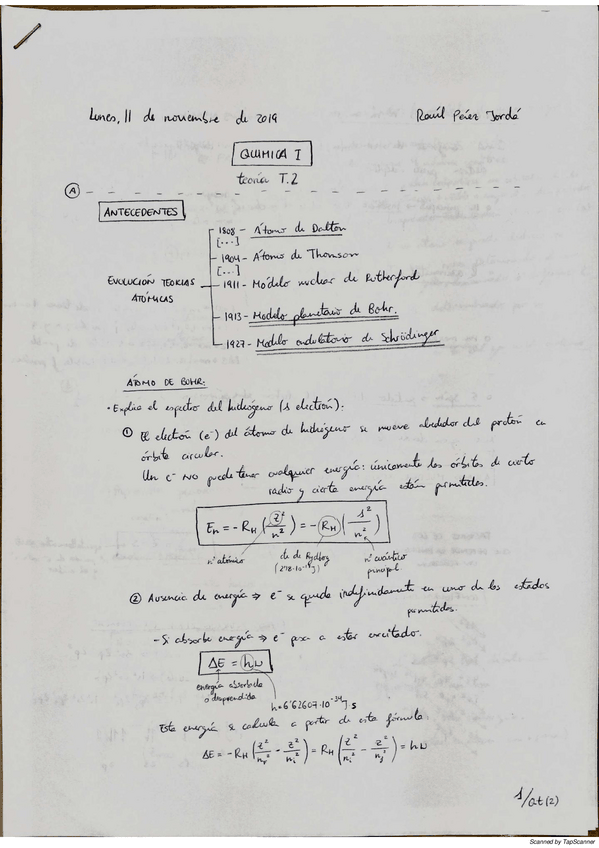 Lunes, 11 de noviembre de 2019
Raúl Pérez Jordá
QUIMICA I
teoría T.2
A
ANTECEDENTES
EVOLUCIÓN TEORÍAS
ATÓMICAS
1808 - Átomo de Dalton
[...]
1904 - Átomo de Thomson
[...]
1911 - Modelo nuclear de Rutherford
1913 - Modelo planetario de Bohr.
1927 - Modelo ondulatorio de Schrödinger
ÁTOMO DE BOHR:
· Explica el espectro del hidrógeno (1 electrón):
① El electrón (e⁻) del átomo de hidrógeno se mueve alrededor del protón en
órbita circular.
Un e⁻ NO puede tener cualquier energía: únicamente las órbitas de cierto
radio y cierta energía están permitidas.
En = - RH (z²/n²) = - RH (1²/n²)
nº atómico
cte de Rydberg
(2'18·10⁻¹⁸ J)
nº cuántico
principal
② Ausencia de energía ⇒ e⁻ se queda indefinidamente en uno de los estados
permitidos.
- Si absorbe energía ⇒ e⁻ pasa a estar excitado.
ΔE = hν
energía absorbida
o desprendida
h = 6'62607·10⁻³⁴ J·s
Esta energía se calcula a partir de esta fórmula
ΔE = - RH (z²/nf² - z²/ni²) = RH (z²/ni² - z²/nf²) = hν
1/at(2)
Scanned by TapScanner